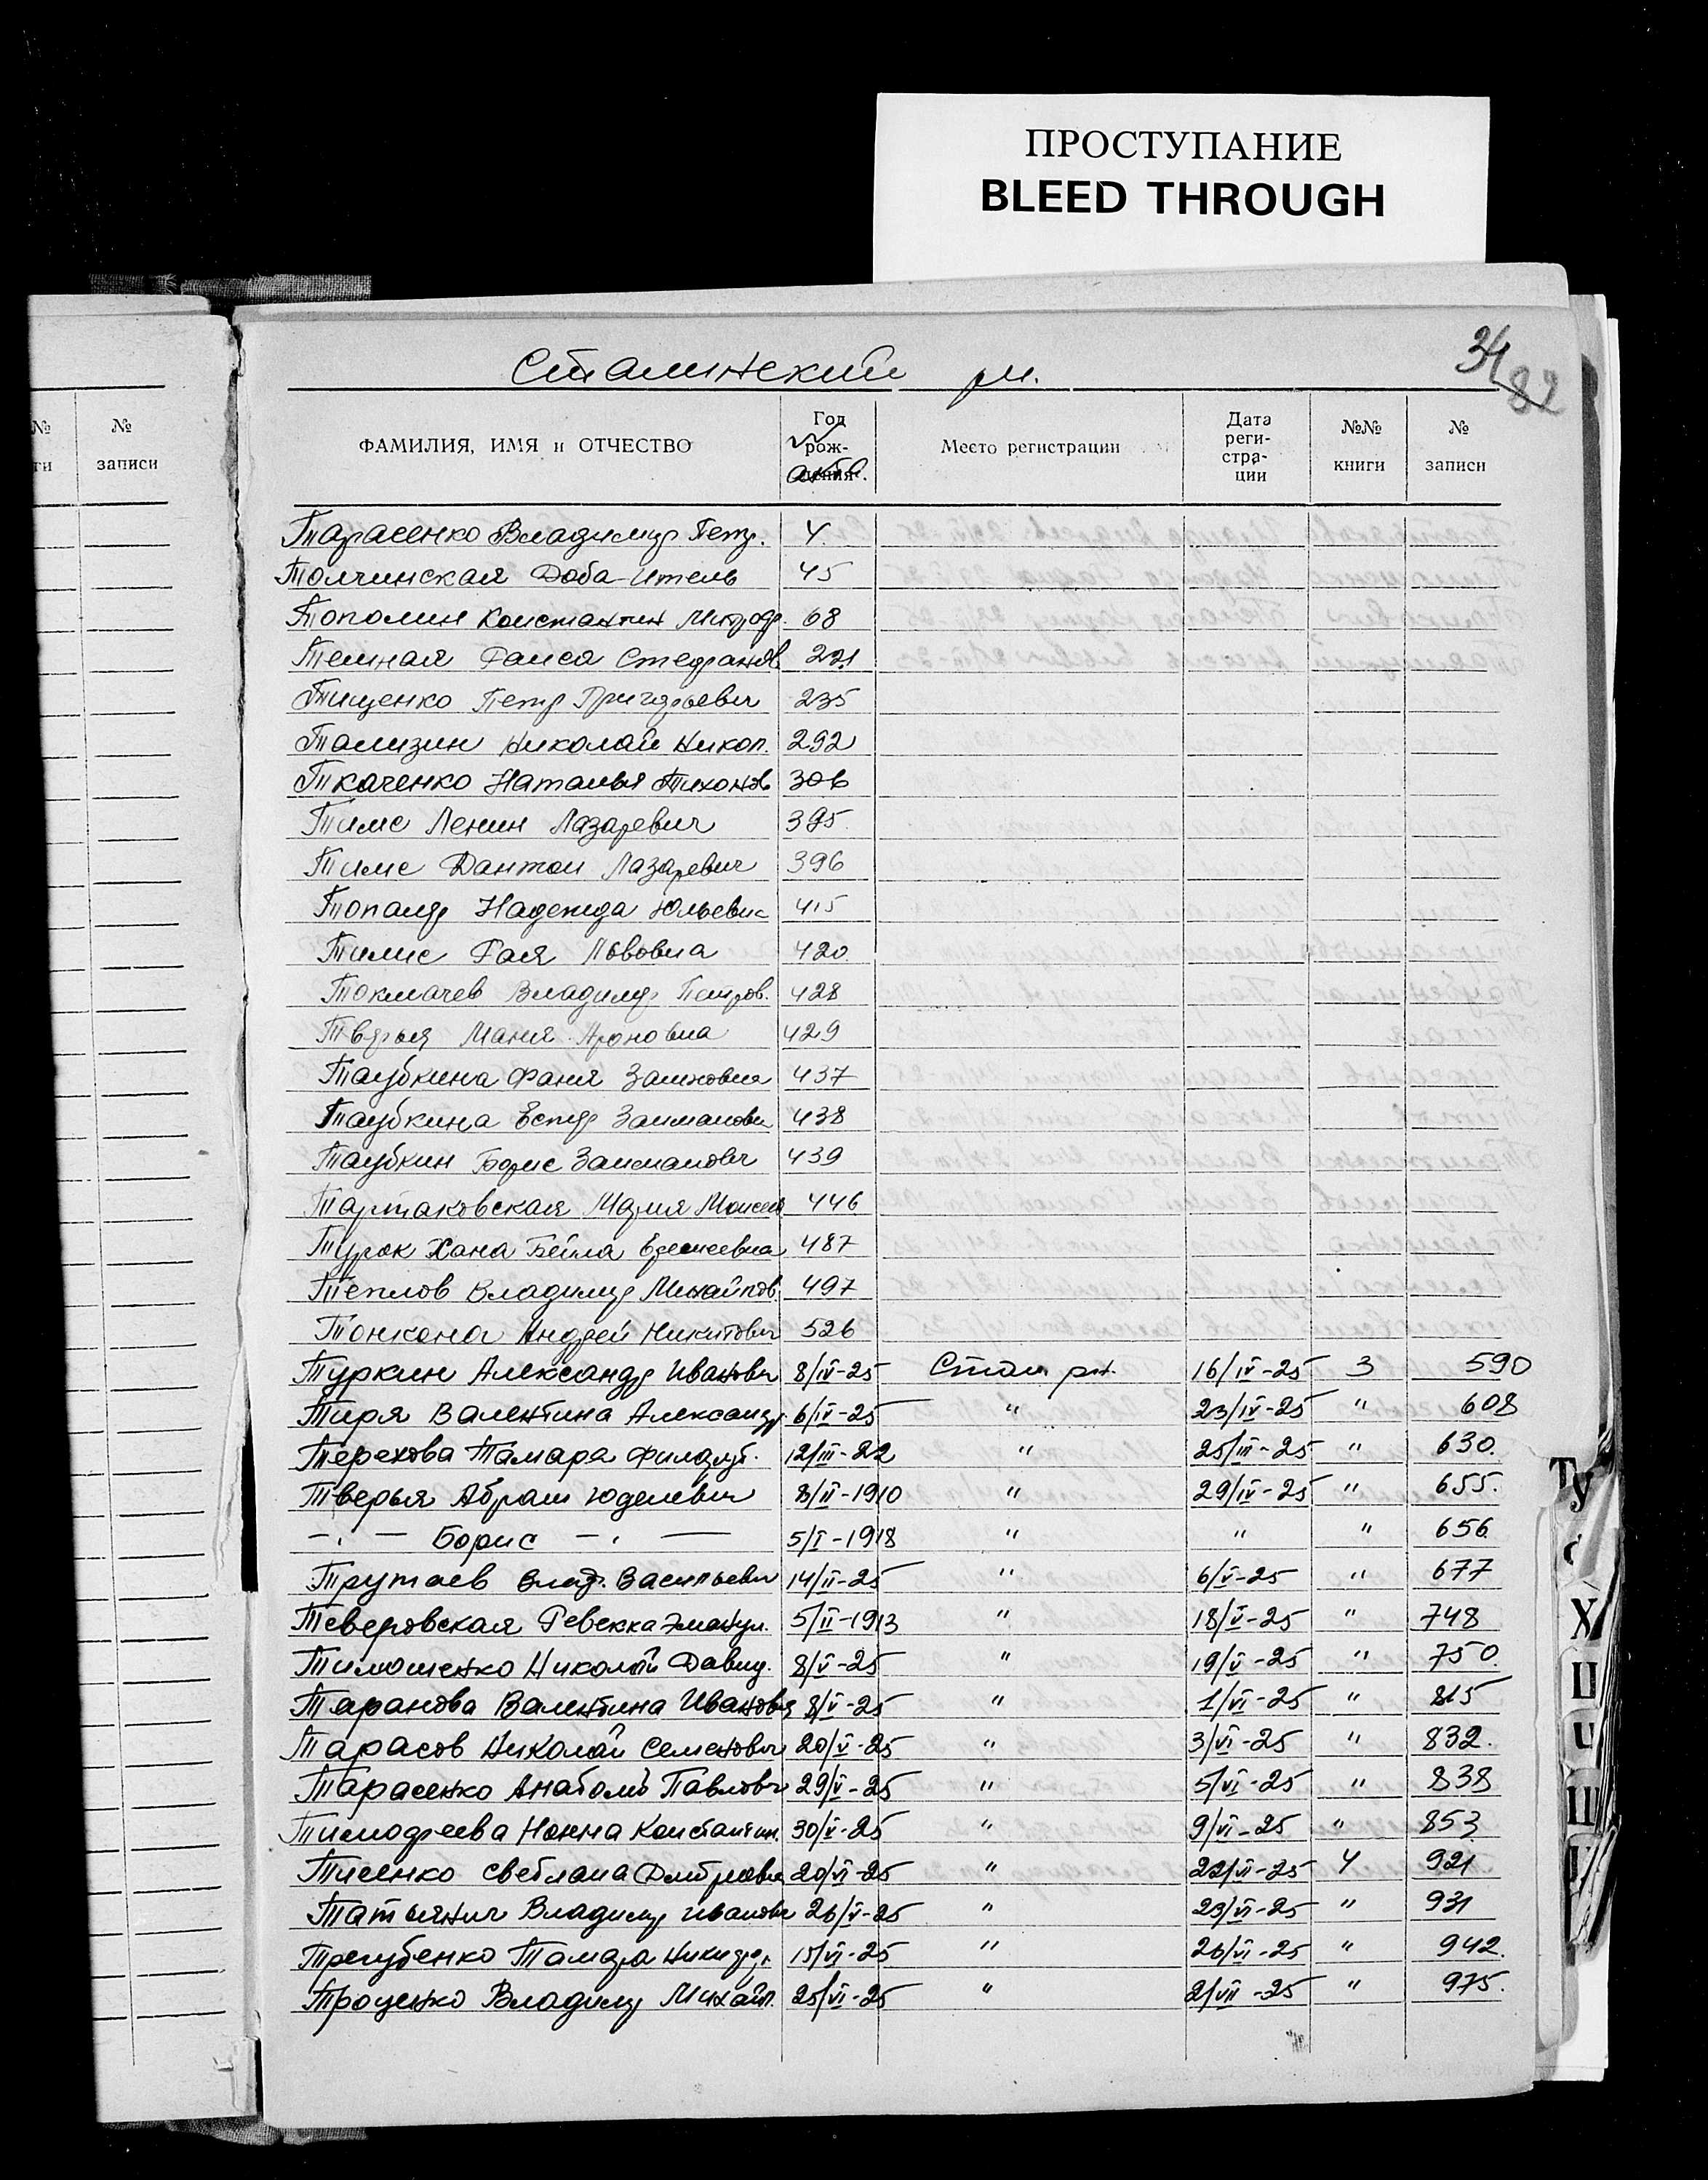 ПРОСТУПАНИЕ
BLEED THROUGH
Сталинский рн.
34
82
№ ги
№ записи
ФАМИЛИЯ, ИМЯ и ОТЧЕСТВО
Год рож-дения актов.
Место регистрации
Дата реги-стра-ции
№№ книги
№ записи
Тарасенко Владимир Петр. 4
Толчинская Доба-Итель 45
Тополин Константин Митроф. 68
Темная Раиса Стефанов 221
Тищенко Петр Григорьевич 235
Тализин Николай Никол. 292
Ткаченко Наталья Тихонов 306
Тимс Ленин Лазаревич 395
Тимс Дантон Лазаревич 396
Топалер Надежда Юльевна 415
Тилис Рая Львовна 420
Токмачев Владимир Петров. 428
Тверья Маня Ароновна 429
Таубкина Фаня 437
Таубкина Естер Залмановн 438
Таубкин Борис Залманович 439
Тартаковская Мария Моисеев 446
Турок Хана Бейла 487
Теплов Владимир Михайлов. 497
Тонконог Андрей Никитович 526
Туркин Александр Иванович 8/IV-25 Стал. рн. 16/IV-25 3 590
Тиря Валентина Александр. 6/IV-25 " 23/IV-25 " 608
Терехова Тамара 12/III-22 " 25/III-25 " 630.
Тверья Абрам Юделевич 8/II-1910 " 29/IV-25 " 655.
—"— Борис —"— 5/I-1918 " " " 656
Трутаев Влад. Васильевич 14/II-25 " 6/V-25 " 677
Теверовская Ревекка Эмануил. 5/II-1913 " 18/V-25 " 748
Тимошенко Николай Давид. 8/V-25 " 19/V-25 " 750.
Таранова Валентина Ивановна 8/V-25 " 1/VI-25 " 815
Тарасов Николай Семенович 20/V-25 " 3/VI-25 " 832.
Тарасенко Анатолий Павлович 29/V-25 " 5/VI-25 " 838
Тимофеева Нонна Константин. 30/V-25 " 9/VI-25 " 853
Тисенко Светлана Дмитриевна 20/VI-25 " 22/VI-25 4 921
Татьянич Владимир Иванович 26/V-25 " 23/VI-25 " 931
Трегубенко Тамара Никифор. 15/VI-25 " 26/VI-25 " 942.
Троценко Владимир Михайл. 25/VI-25 " 2/VII-25 " 975.
Ту
Х